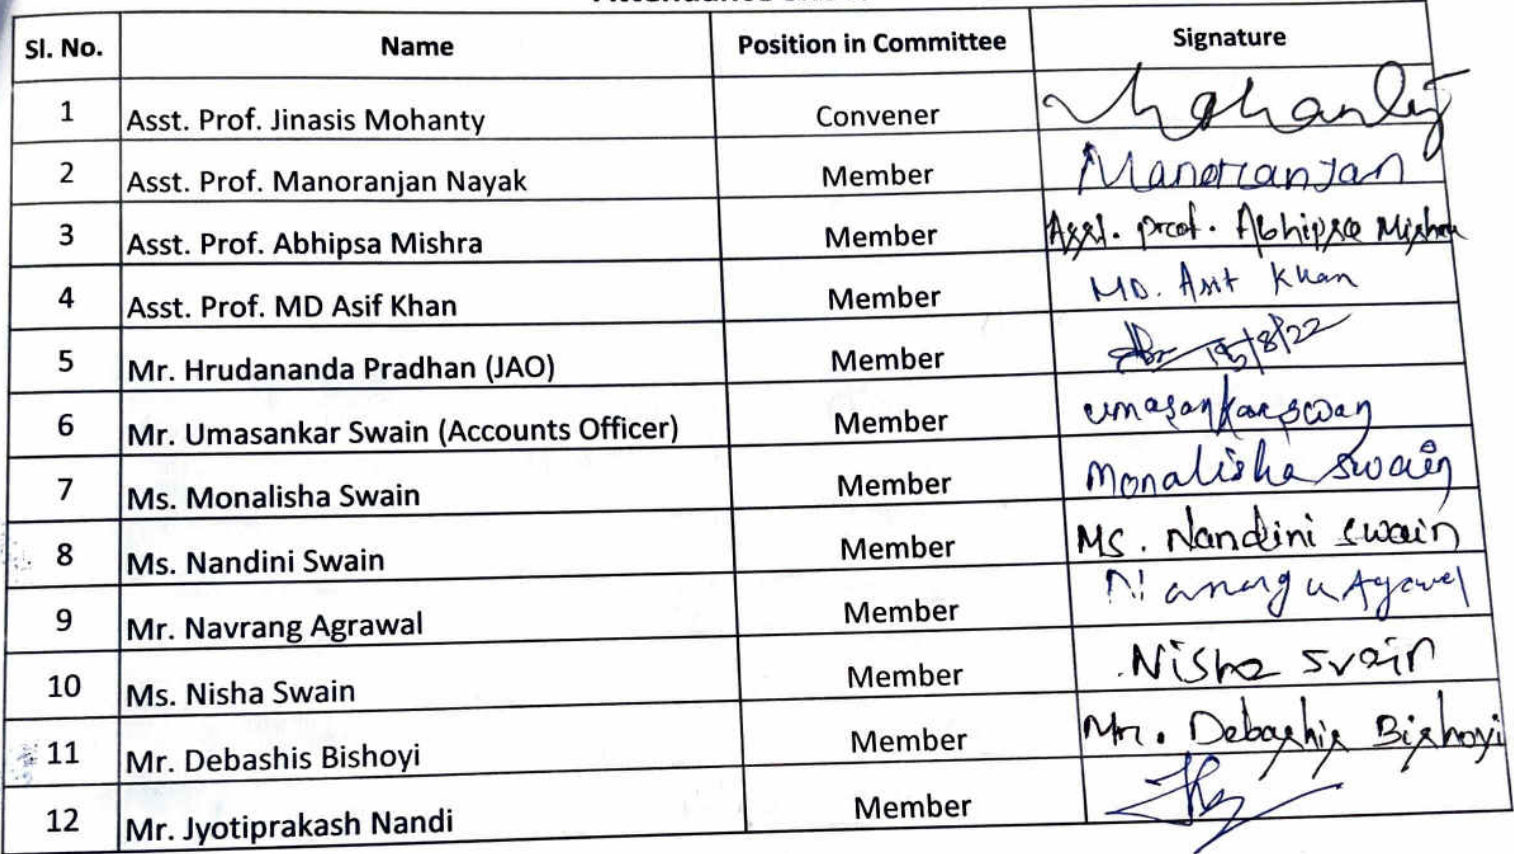 Sl. No. Name Position in Committee Signature
1 Asst. Prof. Jinasis Mohanty Convener Mohanty
2 Asst. Prof. Manoranjan Nayak Member Manoranjan
3 Asst. Prof. Abhipsa Mishra Member Asst. Prof. Abhipsa Mishra
4 Asst. Prof. MD Asif Khan Member MD. Asif Khan
5 Mr. Hrudananda Pradhan (JAO) Member
6 Mr. Umasankar Swain (Accounts Officer) Member umasankar swain
7 Ms. Monalisha Swain Member Monalisha Swain
8 Ms. Nandini Swain Member Ms. Nandini Swain
9 Mr. Navrang Agrawal Member
10 Ms. Nisha Swain Member Nisha Swain
11 Mr. Debashis Bishoyi Member Mr. Debashis Bishoyi
12 Mr. Jyotiprakash Nandi Member